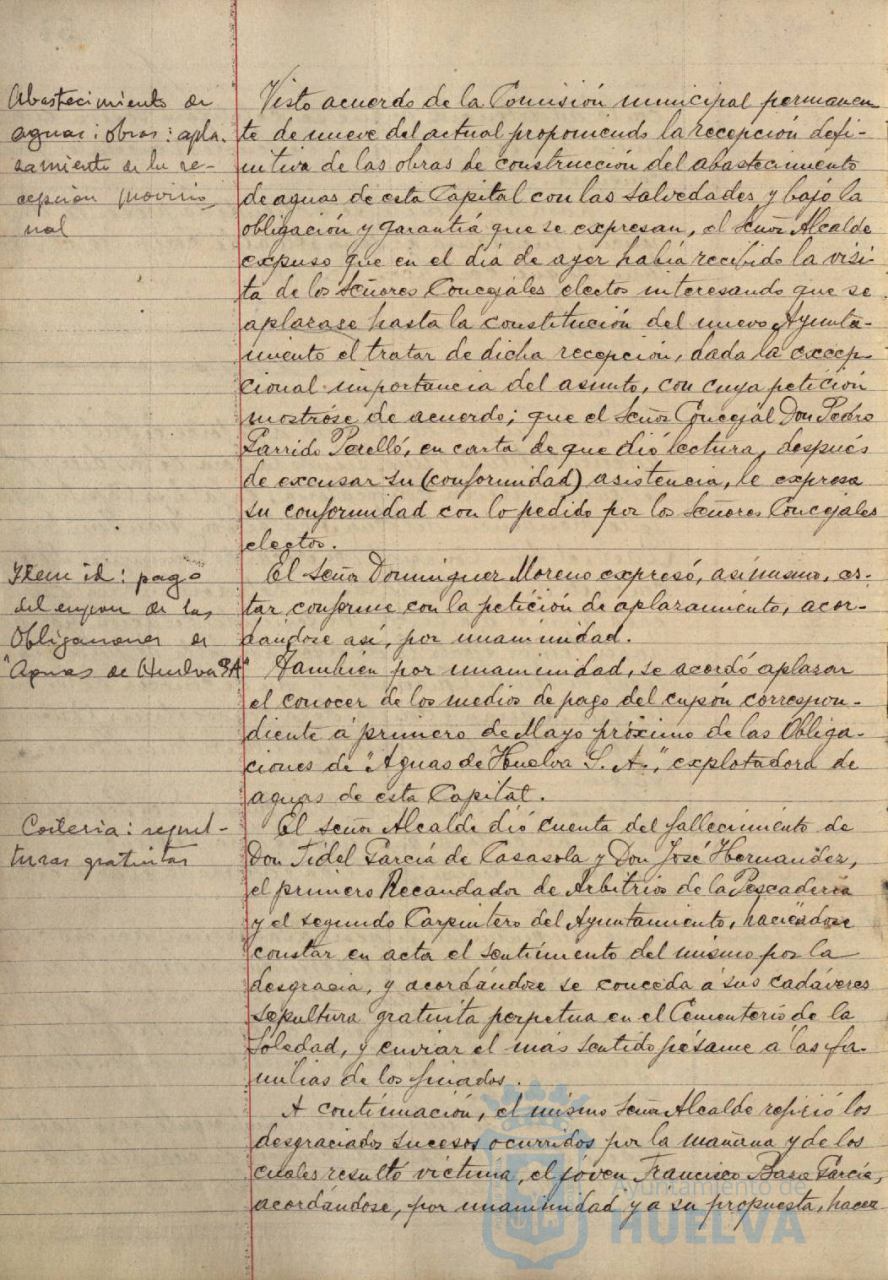 Abastecimiento de
aguas: obras: apla-
zamiento de la re-
cepción provisio-
nal
Visto acuerdo de la Comisión municipal permanen
te de nueve del actual proponiendo la recepción defi-
nitiva de las obras de construcción del abastecimiento
de aguas de esta Capital con las salvedades y bajo la
obligación y garantía que se expresan, el Señor Alcalde
expuso que en el día de ayer había recibido la visi-
ta de los Señores Concejales electos interesando que se
aplazase hasta la constitución del nuevo Ayunta-
miento el tratar de dicha recepción, dada la excep-
cional importancia del asunto, con cuya petición
mostróse de acuerdo; que el Señor Concejal Don Pedro
Garrido Perelló, en carta de que dió lectura, después
de excusar su (conformidad) asistencia, le expresa
su conformidad con lo pedido por los Señores Concejales
electos.
Item id: pago
del cupon de las
Obligaciones de
"Aguas de Huelva SA"
El Señor Dominguez Moreno expresó, asimismo, es-
tar conforme con la petición de aplazamiento, acor-
dándose así, por unanimidad.
También por unanimidad, se acordó aplazar
el conocer de los medios de pago del cupón correspon-
diente á primero de Mayo próximo de las Obliga-
ciones de "Aguas de Huelva S. A.", explotadora de
aguas de esta Capital.
Cortesia: sepul-
turas gratuitas
El señor Alcalde dió cuenta del fallecimiento de
Don Fidel García de Casasola y Don José Hernandez,
el primero Recaudador de Arbitrios de la Pescadería
y el segundo Carpintero del Ayuntamiento, haciéndose
constar en acta el sentimiento del mismo por la
desgracia, y acordándose se conceda á sus cadáveres
sepultura gratuita perpetua en el Cementerio de la
Soledad, y enviar el más sentido pésame á las fa-
milias de los finados.
A continuación, el mismo Señor Alcalde refirió los
desgraciados sucesos ocurridos por la mañana y de los
cuales resultó víctima, el jóven Francisco García,
acordándose, por unanimidad y a su propuesta, hacer
Ayuntamiento de
HUELVA